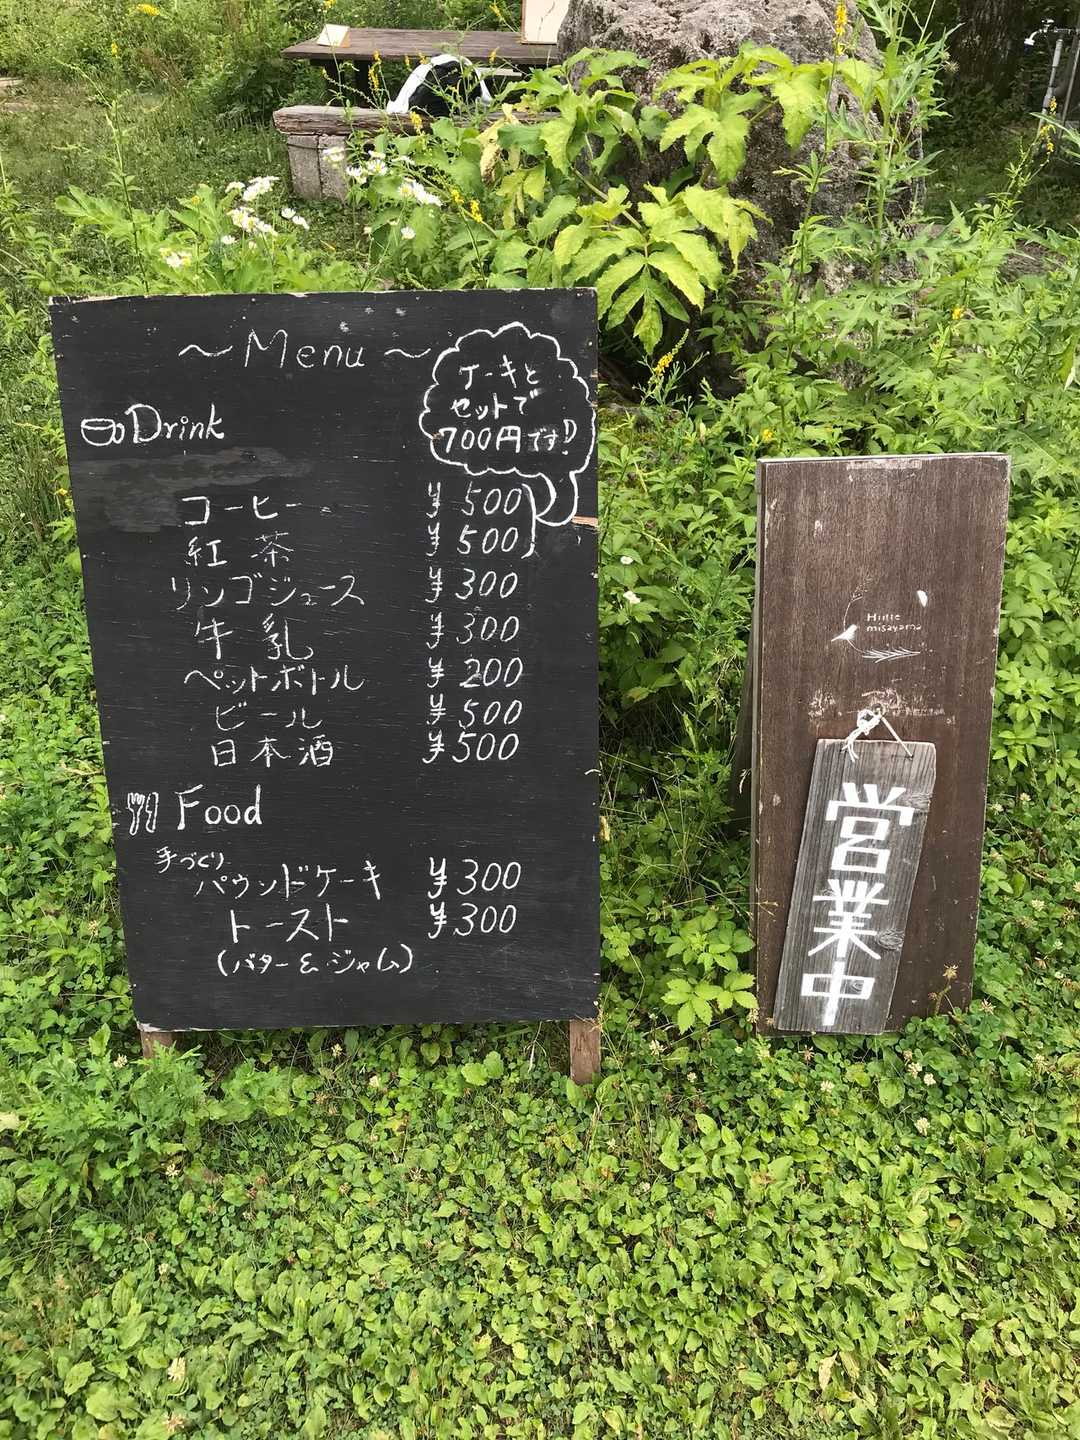 ～Menu～
ケーキと
セットで
700円です!!
Drink
コーヒー ¥500
紅茶 ¥500
リンゴジュース ¥300
牛乳 ¥300
ペットボトル ¥200
ビール ¥500
日本酒 ¥500
Food
手づくり
パウンドケーキ ¥300
トースト ¥300
(バター&ジャム)
Hütte
misayama
営業中